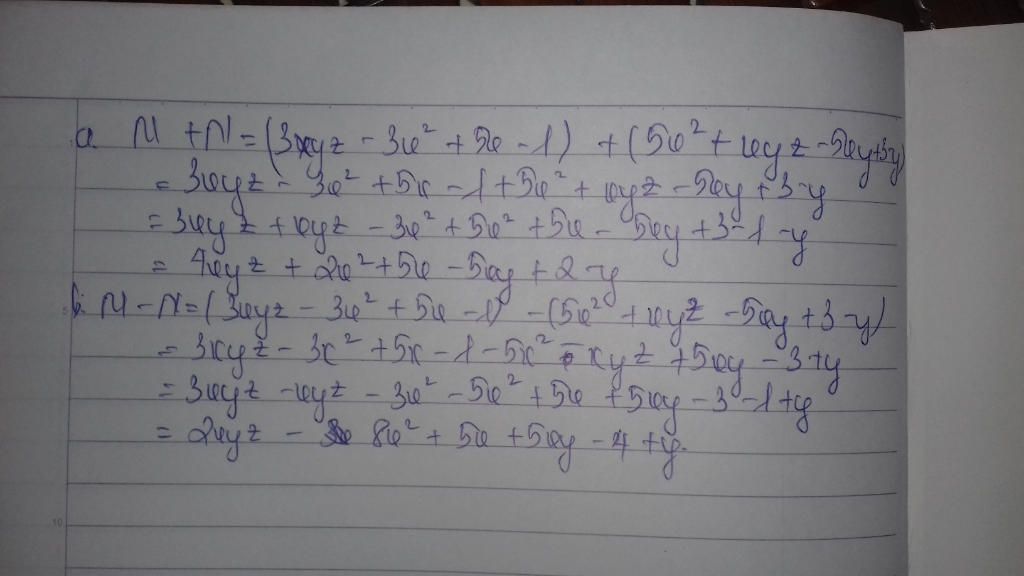 a. M + N = (3xyz - 3x² + 5x - 1) + (5x² + xyz - 5xy + 3 - y)
= 3xyz - 3x² + 5x - 1 + 5x² + xyz - 5xy + 3 - y
= 3xyz + xyz - 3x² + 5x² + 5x - 5xy + 3 - 1 - y
= 4xyz + 2x² + 5x - 5xy + 2 - y
b. M - N = (3xyz - 3x² + 5x - 1) - (5x² + xyz - 5xy + 3 - y)
= 3xyz - 3x² + 5x - 1 - 5x² - xyz + 5xy - 3 + y
= 3xyz - xyz - 3x² - 5x² + 5x + 5xy - 3 - 1 + y
= 2xyz - 8x² + 5x + 5xy - 4 + y.
10